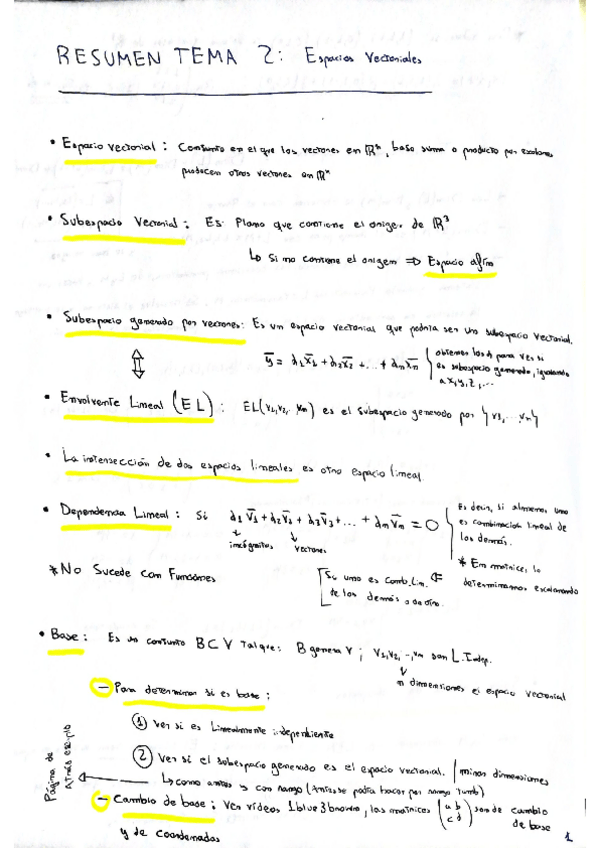 RESUMEN TEMA 2: Espacios Vectoriales
• Espacio vectorial: Conjunto en el que los vectores en ℝⁿ, bajo suma o producto por escalares
producen otros vectores en ℝⁿ
• Subespacio Vectorial: Es Plano que contiene el origen de ℝ³
↳ Si no contiene el origen ⇒ Espacio afín
• Subespacio generado por vectores: Es un espacio vectorial que podría ser un subespacio vectorial.
y̅ = λ₁x̅₁ + λ₂x̅₂ + ... + λₙx̅ₙ
obtenemos los λ para ver si
es subespacio generado, igualando
a x, y, z, ...
• Envolvente Lineal (EL): EL(v₁,v₂,...,vₙ) es el subespacio generado por
• La intersección de dos espacios lineales es otro espacio lineal
• Dependencia Lineal: Si λ₁v̅₁ + λ₂v̅₂ + λ₃v̅₃ + ... + λₙv̅ₙ = 0
incógnitas vectores
Es decir, si al menos uno
es combinación lineal de
los demás.
* En matrices, lo
determinamos escalonando
*No Sucede con Funciones
Si uno es Comb. Lin.
de los demás
• Base: Es un conjunto B ⊂ V tal que: B genera V; v₁,v₂,...,vₙ son L. Indep.
n dimensiones el espacio vectorial
— Para determinar si es base:
① Ver si es Linealmente independiente
② Ver si el subespacio generado es el espacio vectorial. mismas dimensiones
↳ como antes y con rango
Página de
Atrás ejemplo
— Cambio de base: Ver vídeos 1blue3brown, las matrices (a b
c d) son de cambio
de base
y de coordenadas
1